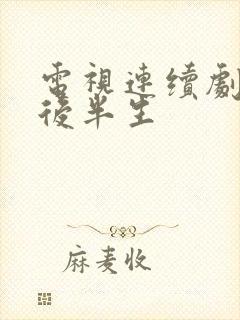 電視連續劇
後半生
麻麦收